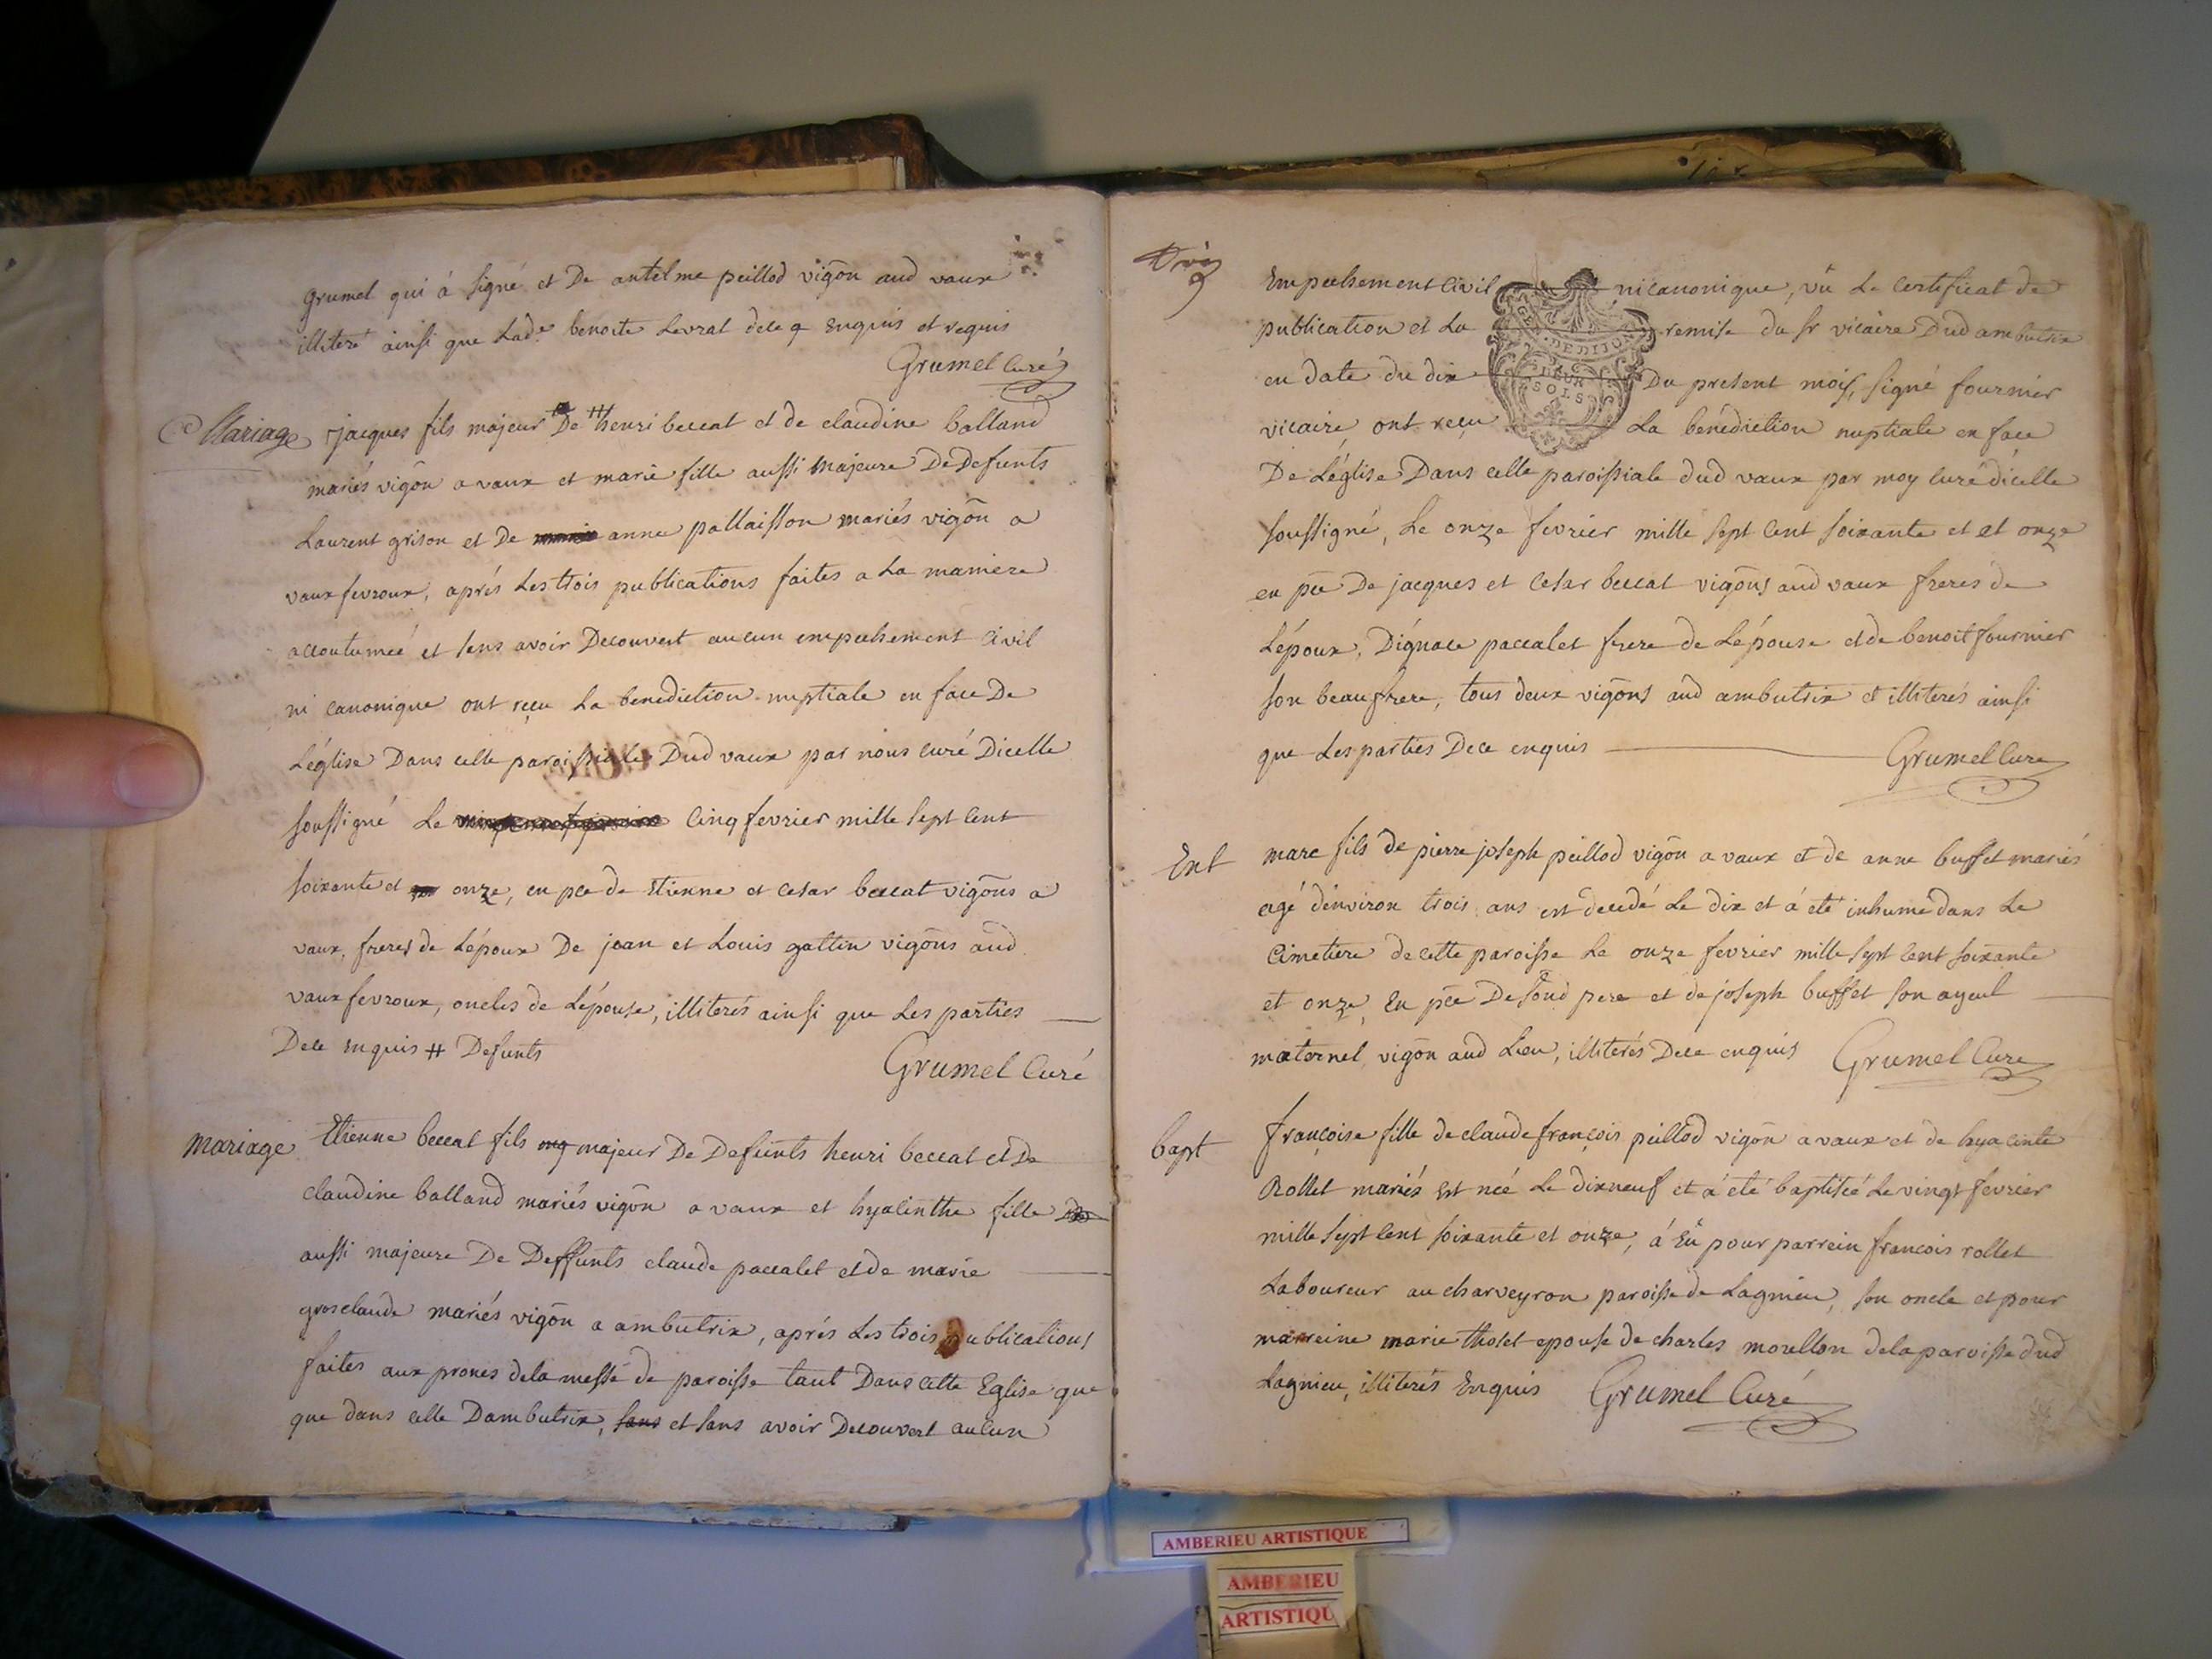 Grumel qui á signé et De antelme peillod vigōn aud vaux
illiteré ainsi que Lad.e benoite Levrat dece q enquis et requis
Grumel Curé
Mariage jacques fils majeur De # henri beccat et de claudine balland
mariés vigōn a vaux et marie fille aussi majeure De Defunts
Laurent grison et De anne pallaisson mariés vigōn a
vaux fevroux, aprés Les trois publications faites a La maniere
accoutumeé et sans avoir Decouvert aucun empechement Civil
ni canonique ont reçu La benediction nuptiale en face De
L'église Dans celle paroissiale Dud vaux par nous curé Dicelle
soussigné Le Cinq fevrier mille sept cent
soixante et onze, en pce de Etienne et Cesar beccat vigōns a
vaux, freres de L'époux De jean et Louis gattin vigōns aud
vaux fevroux, oncles de L'épouse, illiterés ainsi que Les parties
Dece enquis # Defunts
Grumel Curé
Mariage Etienne beccat fils majeur De Defunts henri beccat et De
claudine balland mariés vigōn a vaux et hyacinthe fille
aussi majeure De Deffunts claude paccalet et de marie
grosclaude mariés vigōn a ambutrix, aprés Les trois publications
faites aux prones de la messe de paroisse tant Dans cette Eglise que
que dans celle Dambutrix, sans et sans avoir Decouvert aucun
Empechement Civil ni canonique, vû Le Certificat de
publication et La remise du Sr vicaire Dud ambutrix
en date du dix Du present mois, signé fournier
vicaire, ont reçu La benédiction nuptiale en face
De L'église Dans celle paroissiale dud vaux par moy curé d'icelle
soussigné, Le onze fevrier mille sept Cent soixante et et onze
en pce De jacques et Cesar beccat vigōns aud vaux freres de
L'époux, D'ignace paccalet frere de L'épouse et de benoit fournier
son beaufrere, tous deux vigōns aud ambutrix et illiterés ainsi
que Les parties Dece enquis
Grumel Cure
Ent marc fils de pierre joseph peillod vigōn a vaux et de anne buffet mariés
agé denviron trois ans est decedé Le dix et á eté inhumé dans Le
Cimetiere de cette paroisse Le onze fevrier mille sept Cent soixante
et onze, En pce De sond pere et de joseph buffet son ayeul
maternel, vigōn aud Lieu, illiterés Dece enquis Grumel Cure
bapt françoise fille de claude françois peillod vigōn a vaux et de hyacinte
Rollet mariés Est neé Le dixneuf et á eté baptiseé Le vingt fevrier
mille sept Cent soixante et onze, á Eu pour parrein francois rollet
Laboureur au charveyron paroisse de Lagnieu, son oncle et pour
marreine marie tholet epouse de charles moullon dela paroisse dud
Lagnieu, illiterés Enquis Grumel Curé
GEN. DE DIJON
DEUX
SOLS
AMBERIEU ARTISTIQUE
AMBERIEU
ARTISTIQU